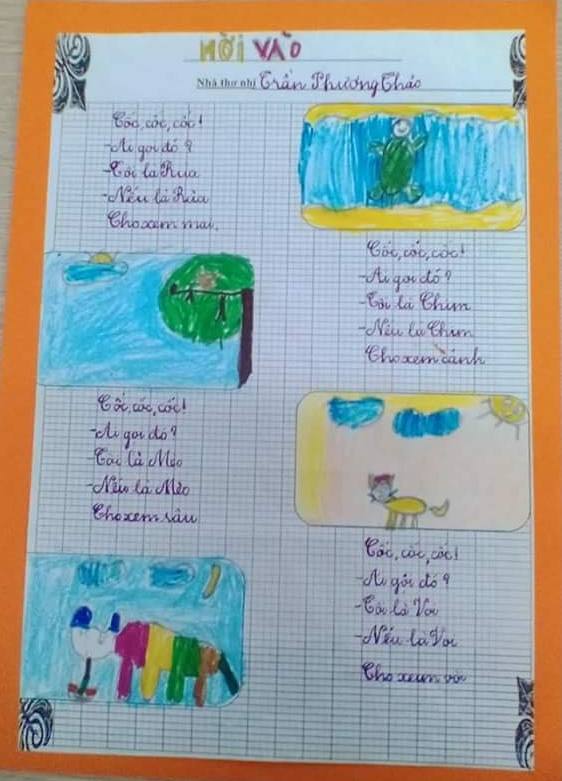 MỜI VÀO
Nhà thơ nhí Trần Phương Thảo
Cốc, cốc, cốc!
-Ai gọi đó?
-Tôi là Rùa
-Nếu là Rùa
Cho xem mai.
Cốc, cốc, cốc!
-Ai gọi đó?
-Tôi là Chim
-Nếu là Chim
Cho xem cánh
Cốc, cốc, cốc!
-Ai gọi đó?
-Tôi là Mèo
-Nếu là Mèo
Cho xem râu
Cốc, cốc, cốc!
-Ai gọi đó?
-Tôi là Voi
-Nếu là Voi
Cho xem vòi